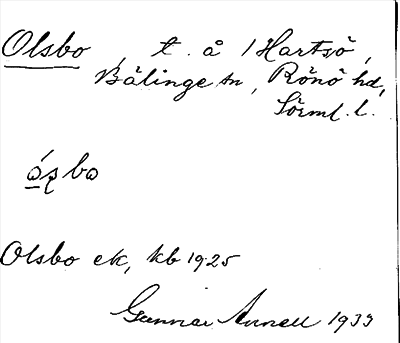 Olsbo, t. å Hartsö,
Bälinge sn, Rönö hd,
Sörml. l.
ós̨bo
Olsbo ek, kb 1925
Gunnar Annell 1933